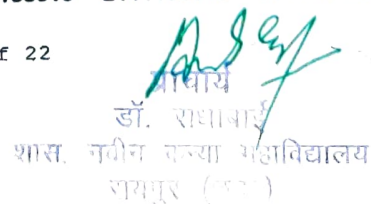 f 22
प्राचार्य
डॉ. राधाबाई
शास. नवीन कन्या महाविद्यालय
रायपुर (छ.ग.)